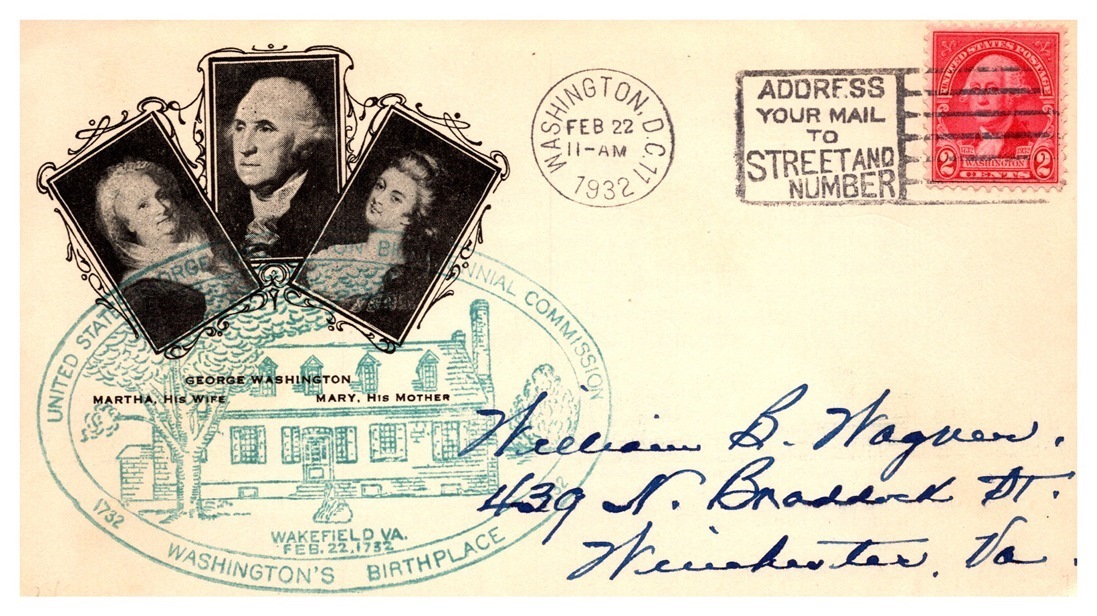 WASHINGTON, D.C. 11
FEB 22
11-AM
1932
ADDRESS
YOUR MAIL
TO
STREET AND
NUMBER
UNITED STATES POSTAGE
2 WASHINGTON 2
CENTS
UNITED STATES GEORGE BICENTENNIAL COMMISSION
GEORGE WASHINGTON
MARTHA, HIS WIFE MARY, HIS MOTHER
WAKEFIELD VA.
FEB. 22, 1732
1732
WASHINGTON'S BIRTHPLACE
William B. Wagner.
439 N. Braddock St.
Winchester, Va.